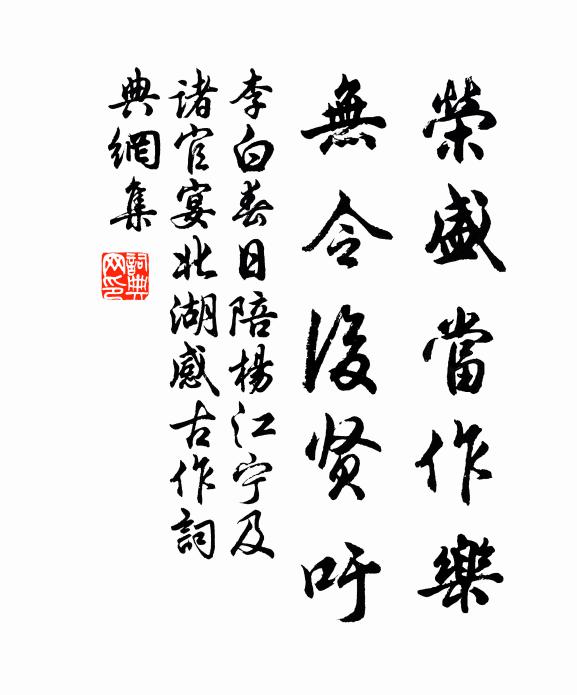 榮盛當作樂
無令後贤吁
李白春日陪楊江宁及
諸官宴北湖感古作詞
典網集
詞典网印